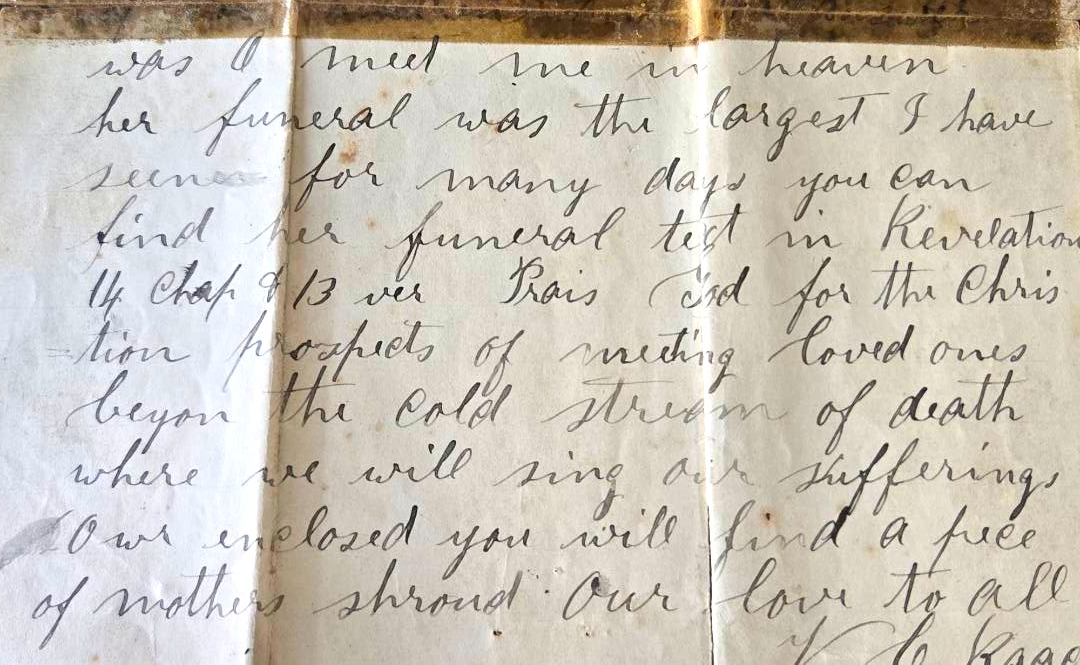 was O meet me in heaven
her funeral was the largest I have
seen for many days you can
find her funeral text in Revelation
14 Chap & 13 ver Prais God for the Chris
=tion prospects of meeting loved ones
beyon the cold stream of death
where we will sing our sufferings
Owr enclosed you will find a piece
of mothers shroud Our love to all